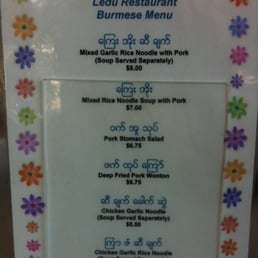 Ledu Restaurant
Burmese Menu
ကြေး အိုး ဆီ ချက်
Mixed Garlic Rice Noodle with Pork
(Soup Served Separately)
$8.00
ကြေး အိုး
Mixed Rice Noodle Soup with Pork
$7.00
ဝက် အူ သုပ်
Pork Stomach Salad
$6.75
ဖက် ထုပ် ကြော်
Deep Fried Pork Wonton
$6.75
ဆီ ချက် ခေါက် ဆွဲ
Chicken Garlic Noodle
(Soup Served Separately)
$5.50
ကြာ ဇံ ဆီ ချက်
Chicken Garlic Rice Noodle
(Soup Served Separately)